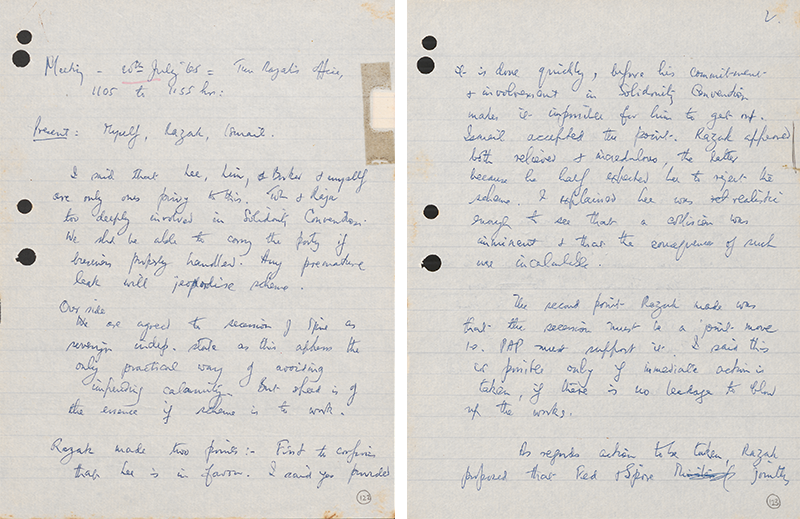 Meeting - 20th July '65 = Tun Razak's office,
1105 to 1155 hrs:
Present: Myself, Razak, Ismail.
I said that Lee, Lim, & Barker & myself
are only ones privy to this. Toh & Raja
too deeply involved in Solidarity Convention.
We shd be able to carry the party if
business properly handled. Any premature
leak will jeopardise scheme.
Our side
We are agreed to secession of S'pore as
sovereign indep. state as this appears the
only practical way of avoiding
impending calamity. But speed is of
the essence if scheme is to work.
Razak made two points:- First to confirm
that Lee is in favour. I said yes provided
(122)
2.
it is done quickly, before his commitment
& involvement in Solidarity Convention
makes it impossible for him to get out.
Ismail accepted this point. Razak appeared
both relieved & incredulous, the latter
because he half expected Lee to reject the
scheme. I explained Lee was realistic
enough to see that a collision was
imminent & that the consequences of such
are incalculable.
The second point Razak made was
that the secession must be a joint move
i.e. PAP must support it. I said this
is possible only if immediate action is
taken, if there is no leakage to blow
up the works.
As regards action to be taken, Razak
proposed that Fed & S'pore jointly
(123)